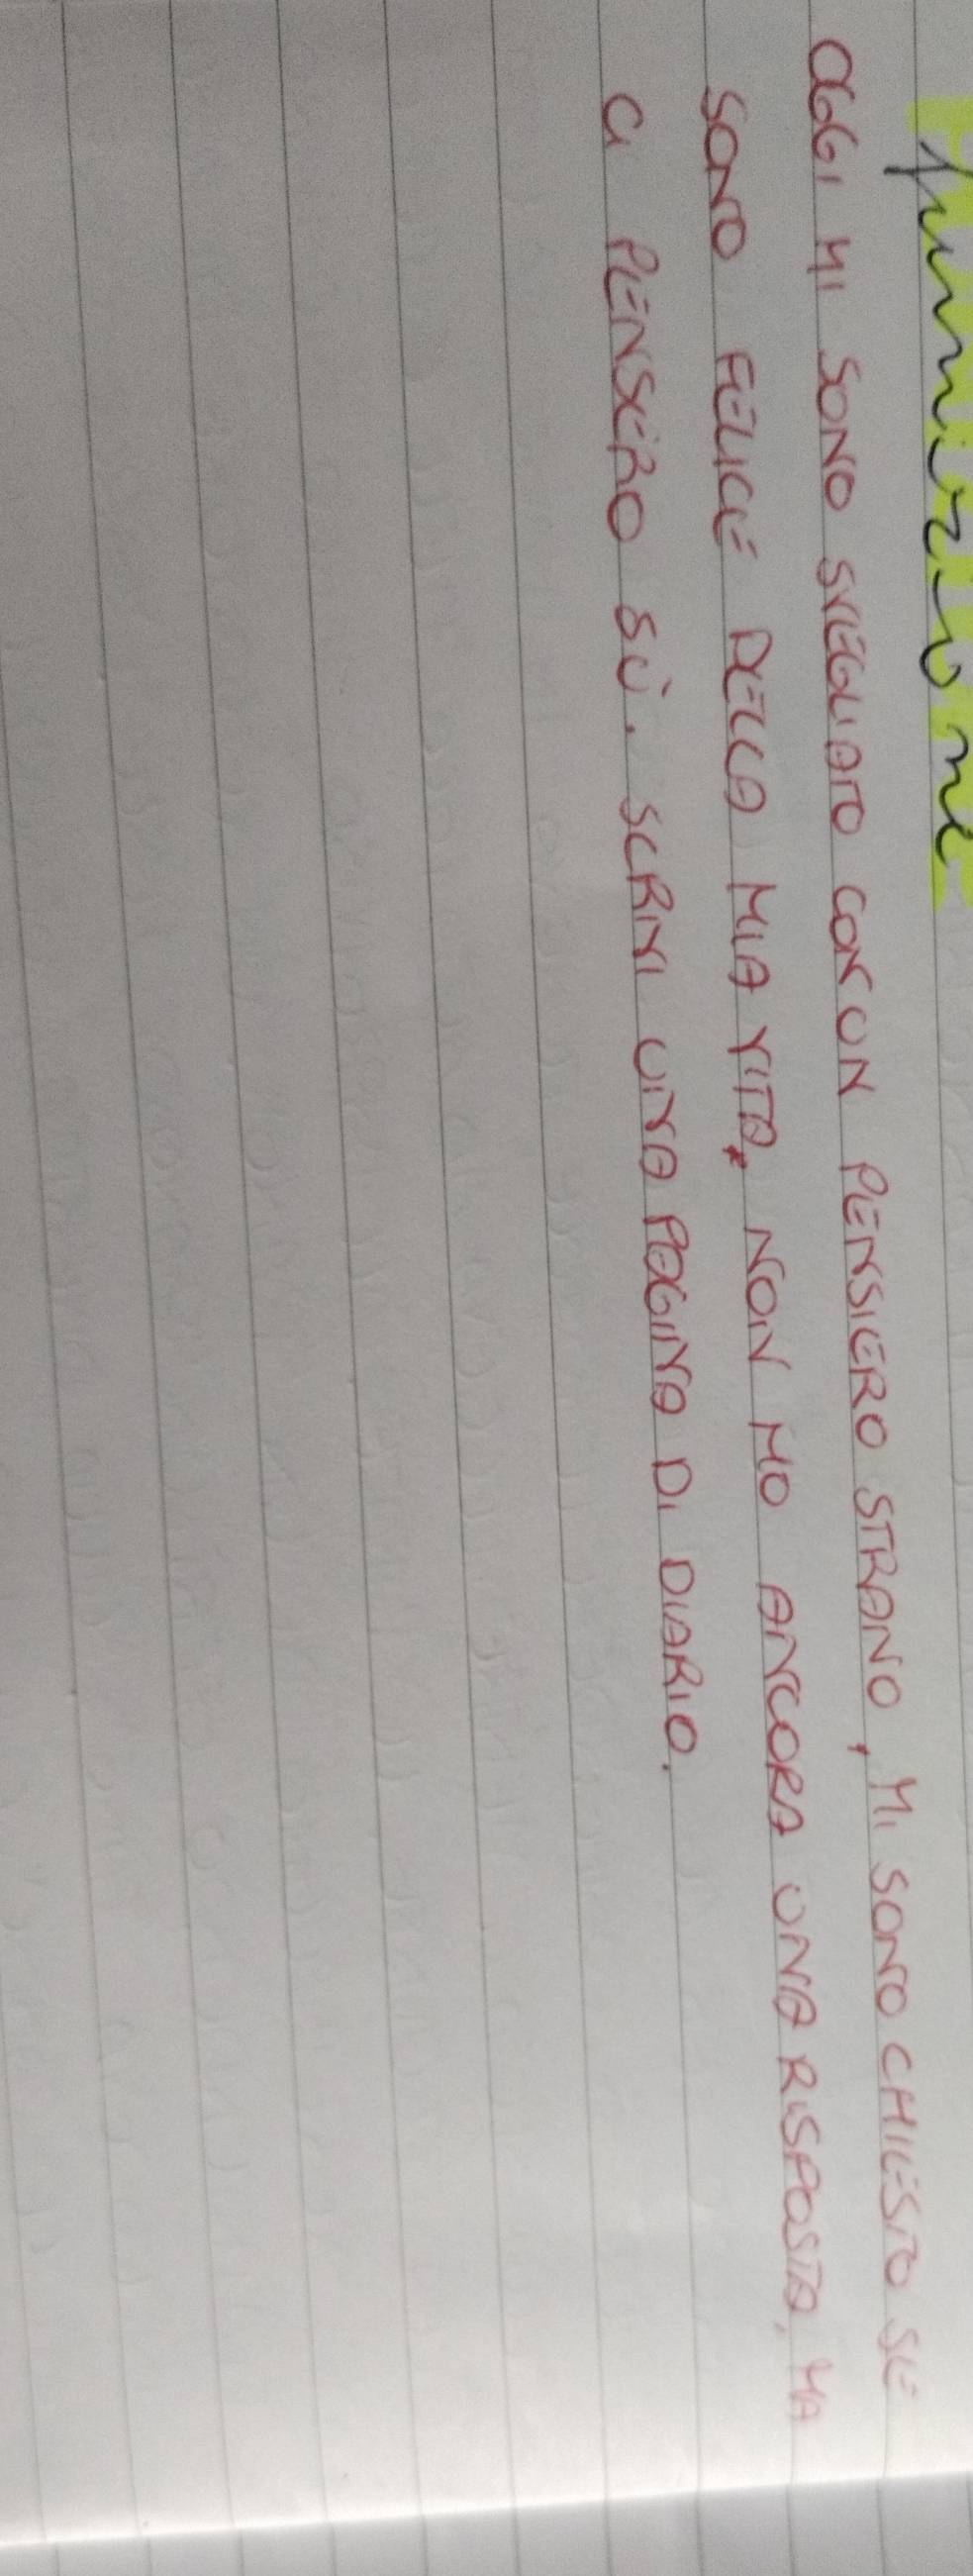 funzione
OGGI MI SONO SVEGLIATO CON UN PENSIERO STRANO, MI SONO CHIESTO SE
SONO FELICE DELLA MIA VITA, NON HO ANCORA UNA RISPOSTA, MA
CI PENSERO SÙ. SCRIVI UNA PAGINA DI DIARIO.